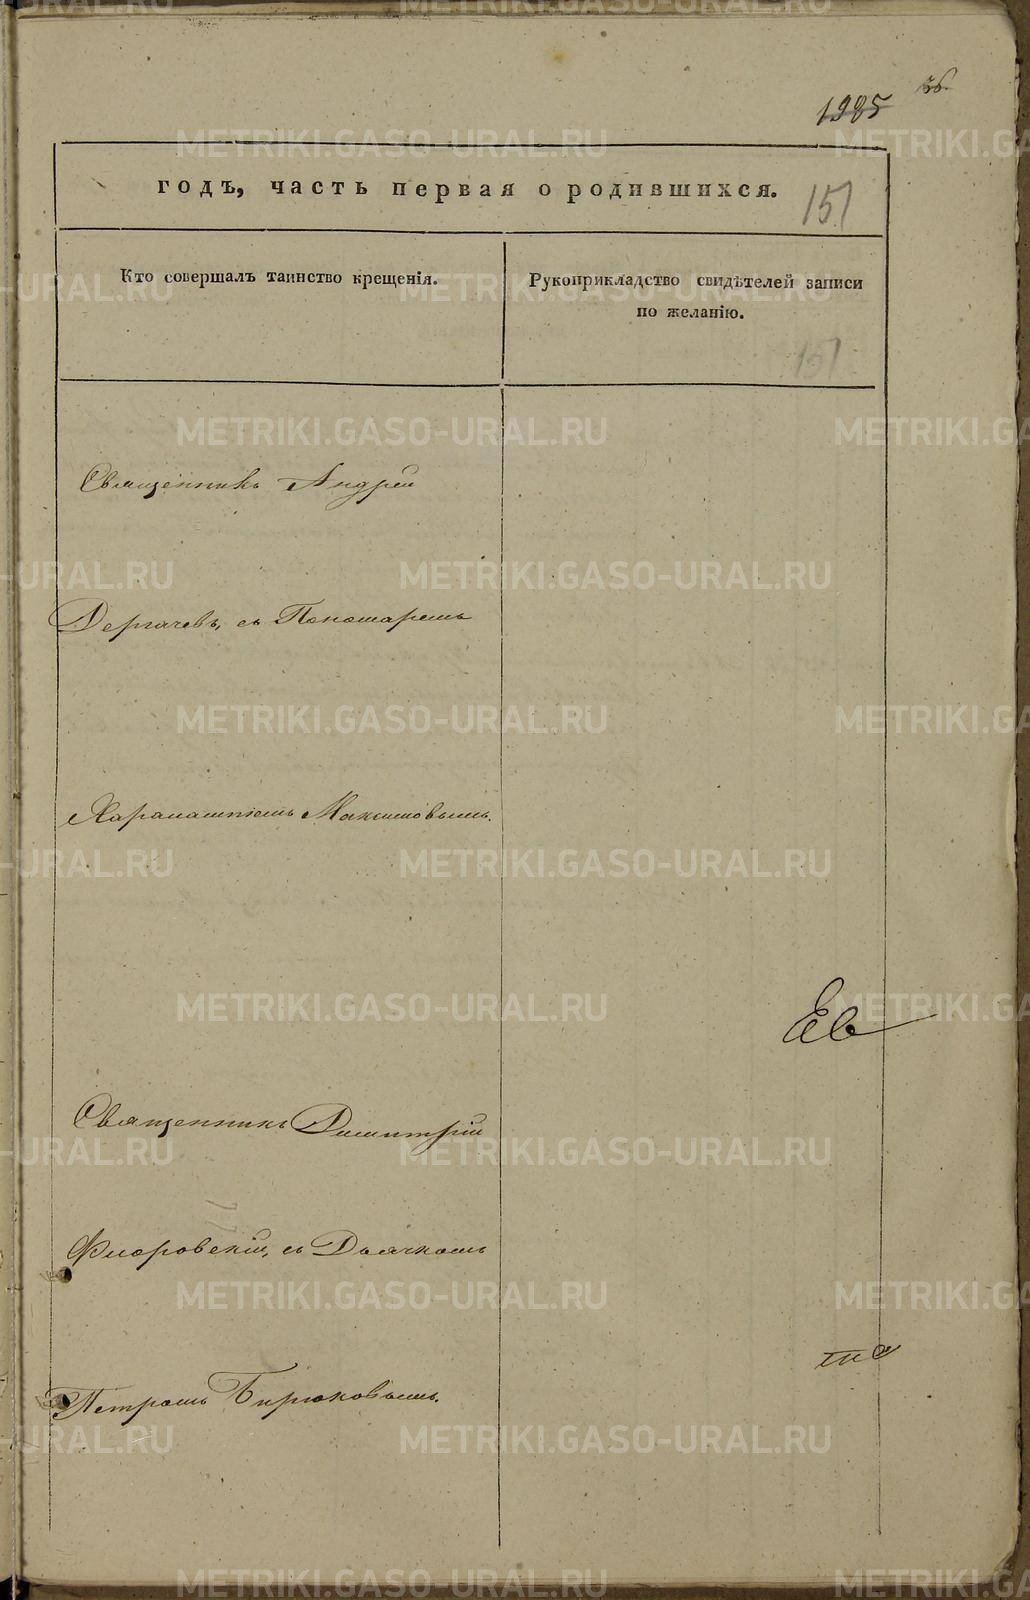 1985
36.
годъ, часть первая о родившихся.
151
Кто совершалъ таинство крещенія.
Рукоприкладство свидѣтелей записи
по желанію.
151
Священникъ Андрей
Дергачевъ, съ Пономаремъ
Харалампіемъ Максимовымъ.
Ев
Священникъ Димитрій
Флоровскій, съ Дьячкомъ
Петромъ Бирюковымъ.
METRIKI.GASO-URAL.RU